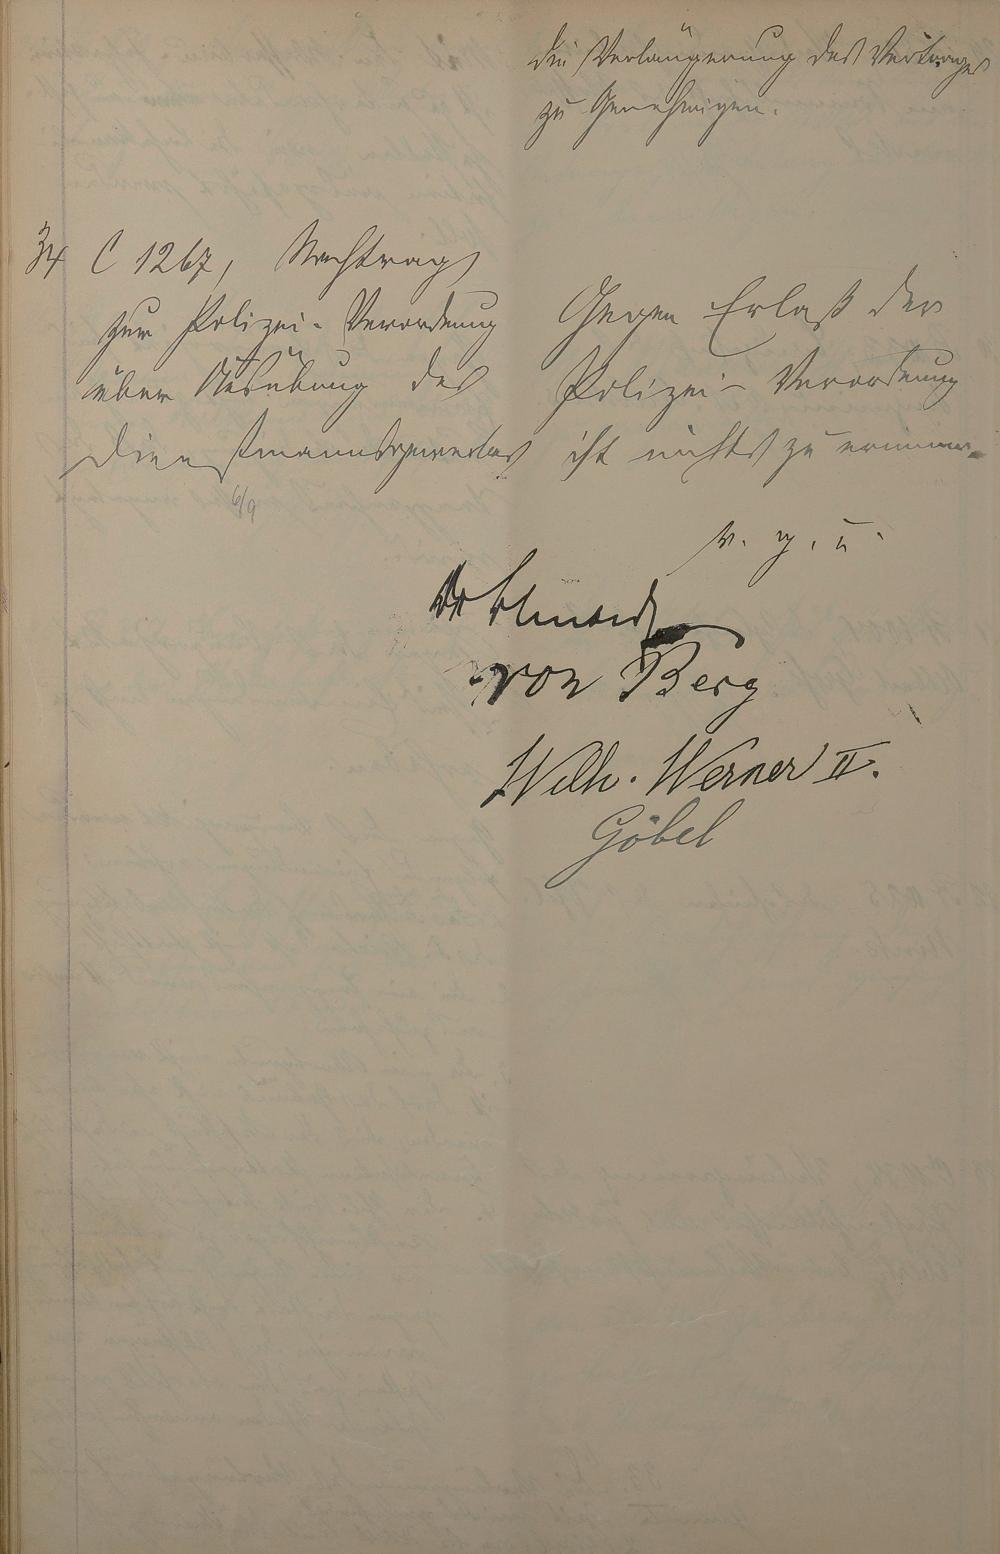 die Verlängerung des Vertrages
zu genehmigen.
34 C 1267, Nachtrag
zur Polizei-Verordnung
über Ausübung des
Dienstmannsgewerbes
6/9
Gegen Erlaß der
Polizei-Verordnung
ist nichts zu erinnern.
v. g. u.
Dr
von Berg
Wilh. Werner II.
Göbel